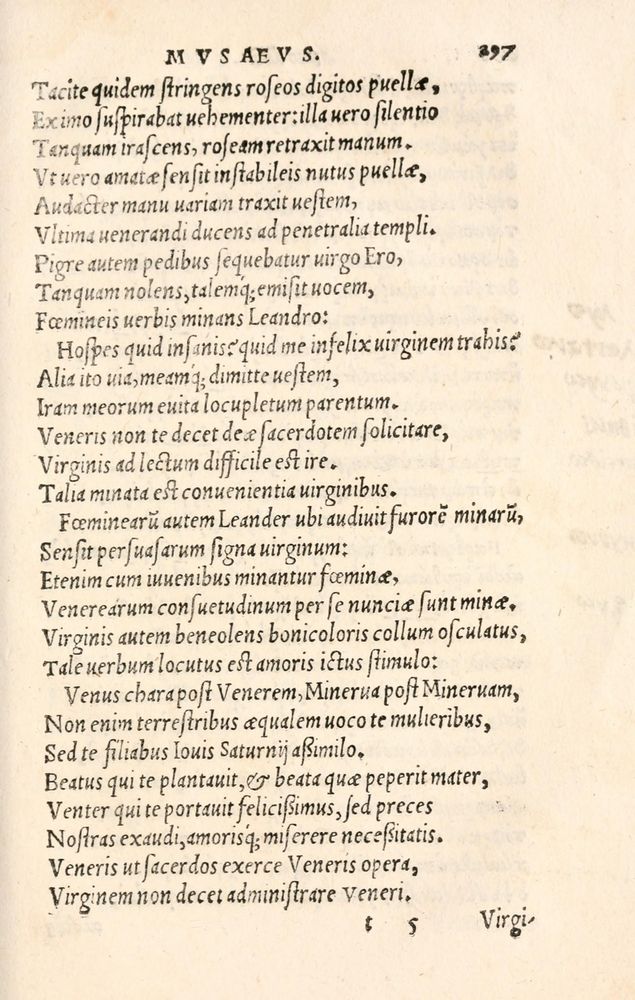 MVSAEVS. 297
Tacite quidem ſtringens roſeos digitos puellæ,
Eximo ſuſpirabat uehementer: illa uero ſilentio
Tanquam iraſcens, roſeam retraxit manum.
Vt uero amatæ ſenſit inſtabileis nutus puellæ,
Audacter manu uariam traxit ueſtem,
Vltima uenerandi ducens ad penetralia templi.
Pigre autem pedibus ſequebatur uirgo Ero,
Tanquam nolens, talemq́; emiſit uocem,
Fœmineis uerbis minans Leandro:
Hoſpes quid inſanis? quid me infelix uirginem trahis?
Alia ito uia, meamq́; dimitte ueſtem,
Iram meorum euita locupletum parentum.
Veneris non te decet deæ ſacerdotem ſolicitare,
Virginis ad lectum difficile eſt ire.
Talia minata eſt conuenientia uirginibus.
Fœminearū autem Leander ubi audiuit furorē minarū,
Senſit perſuaſarum ſigna uirginum:
Etenim cum iuuenibus minantur fœminæ,
Venerearum conſuetudinum per ſe nunciæ ſunt minæ.
Virginis autem beneolens bonicoloris collum oſculatus,
Tale uerbum locutus eſt amoris ictus ſtimulo:
Venus chara poſt Venerem, Minerua poſt Mineruam,
Non enim terreſtribus æqualem uoco te mulieribus,
Sed te filiabus Iouis Saturnij aßimilo.
Beatus qui te plantauit, & beata quæ peperit mater,
Venter qui te portauit felicißimus, ſed preces
Noſtras exaudi, amorisq́; miſerere neceßitatis.
Veneris ut ſacerdos exerce Veneris opera,
Virginem non decet adminiſtrare Veneri.
t 5 Virgi-